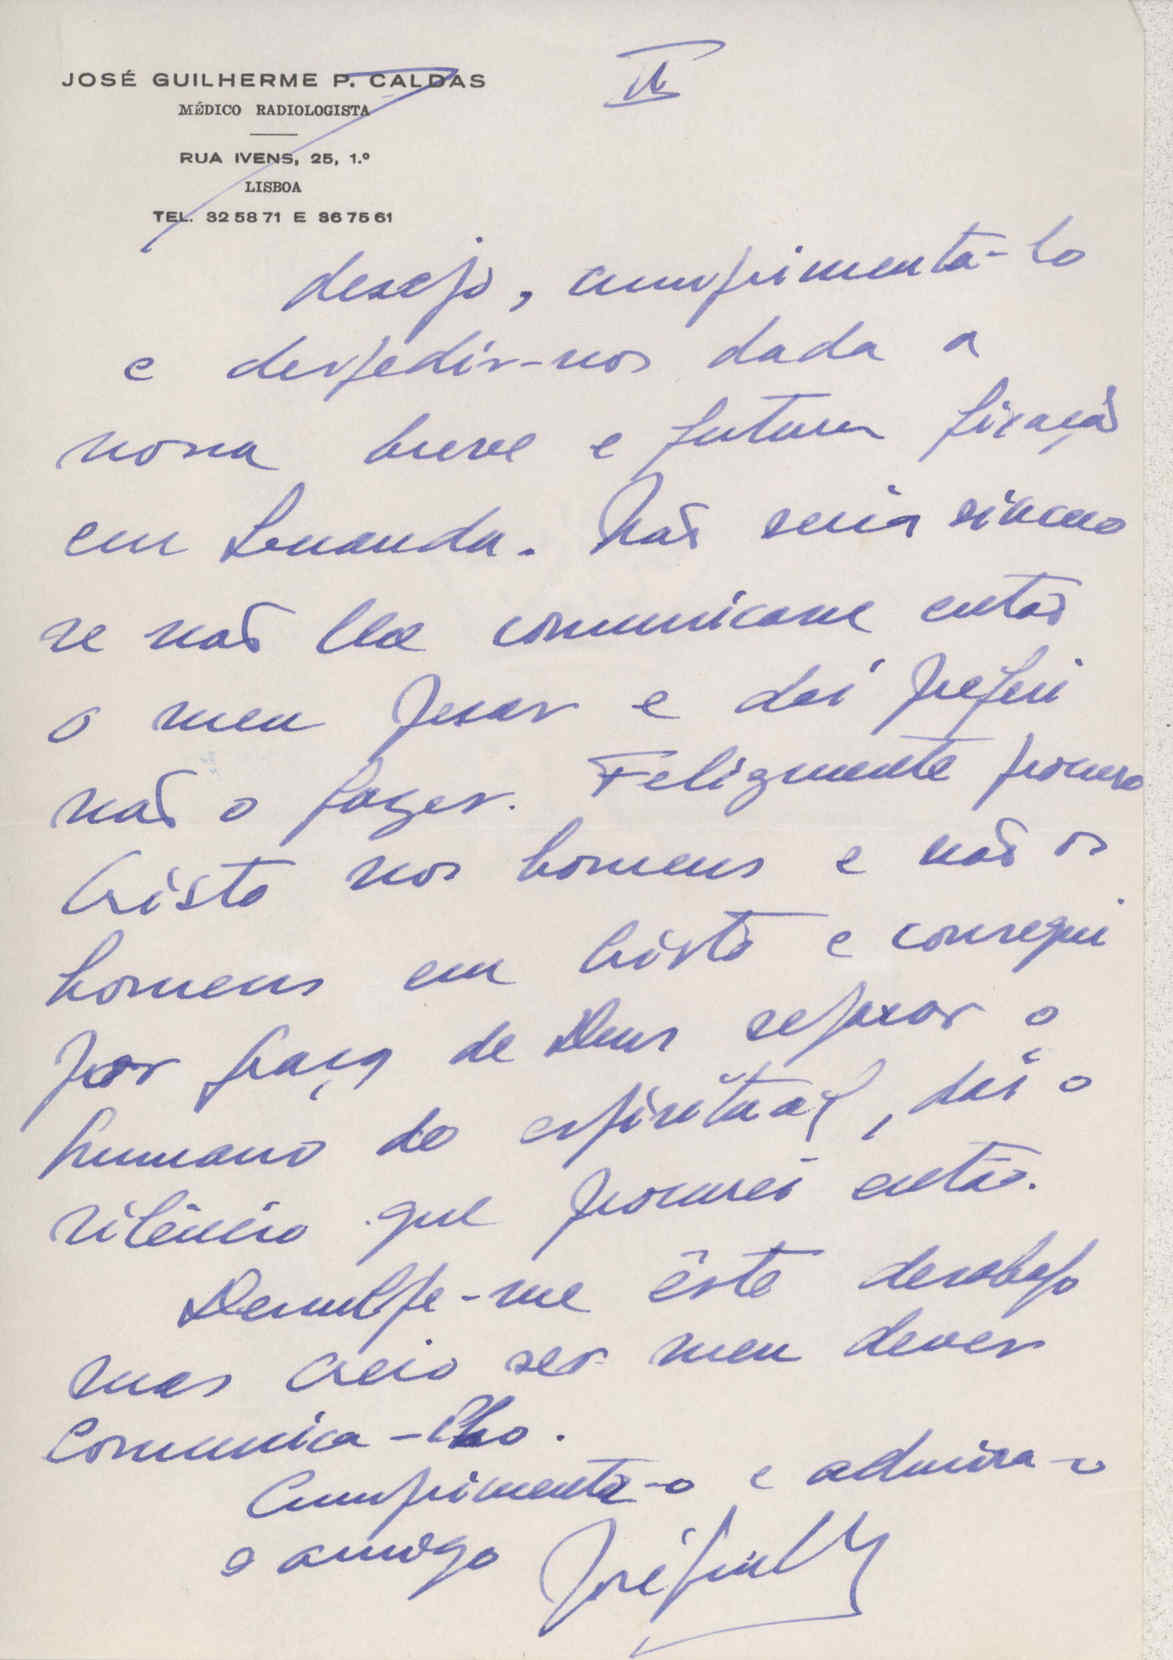 JOSÉ GUILHERME P. CALDAS
MÉDICO RADIOLOGISTA
RUA IVENS, 25, 1.º
LISBOA
TEL. 32 58 71 E 36 75 61
desejo, cumprimentá-lo
e despedir-nos dada a
nossa breve e futura fixação
em Luanda. Não seria sincero
se não lhe comunicasse então
o meu pesar e daí preferi
não o fazer. Felizmente procuro
Cristo nos homens e não os
homens em Cristo e consegui
por Graça de Deus separar o
humano do espiritual, daí o
silêncio que procurei então.
Desculpe-me êste desabafo
mas creio ser meu dever
comunica-lho.
Cumprimenta-o e admira-o
o amigo José Guilh